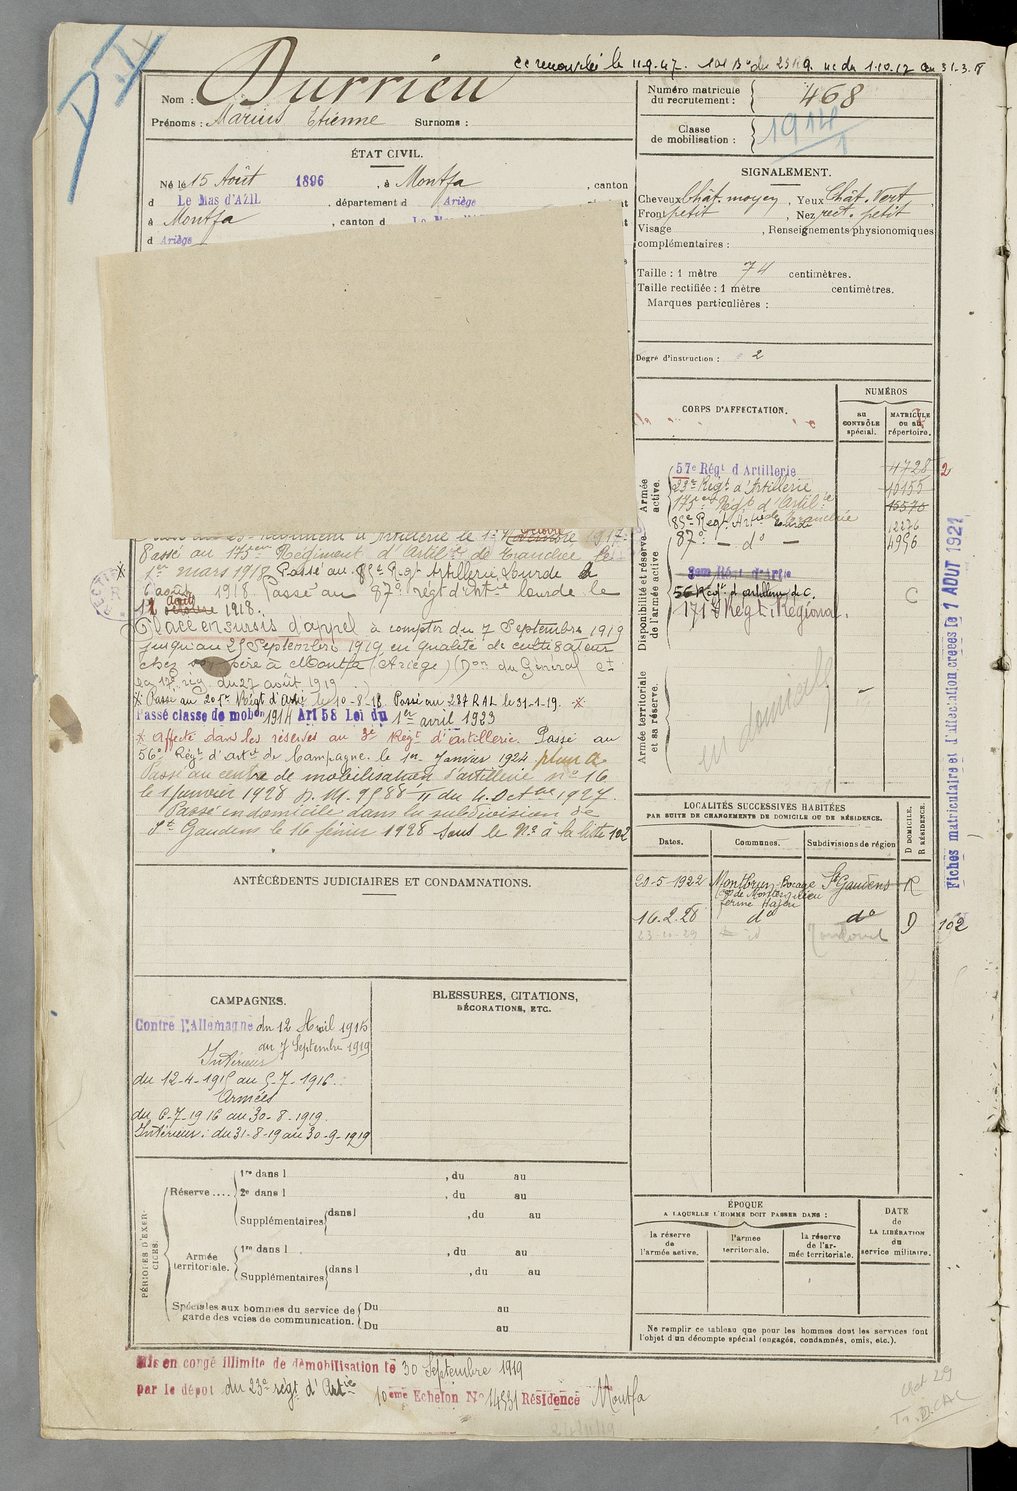 ce renouvelée le 11.9.47.
Nom : Durrieu
Prénoms : Marius Etienne Surnoms :
Numéro matricule
du recrutement : 468
Classe
de mobilisation : 1914
ÉTAT CIVIL.
Né le 15 Août 1896, à Montfa, canton
d Le Mas d'AZIL, département d Ariège
à Montfa, canton d
d Ariège
SIGNALEMENT.
Cheveux Chât. moyen, Yeux Chât. Vert,
Front petit, Nez rect. petit
Visage , Renseignements physionomiques
complémentaires :
Taille : 1 mètre 74 centimètres.
Taille rectifiée : 1 mètre centimètres.
Marques particulières :
Degré d'instruction : 2
CORPS D'AFFECTATION.
NUMÉROS
au
CONTRÔLE
spécial.
MATRICULE
ou au
répertoire.
Armée
active.
57e Régt d'Artillerie 4728
23e Régt d'Artillerie
175e Régt d'Artil.ie 15570
85e Regt Art Lourde 12276
87e - do - 4996
Disponibilité et réserve
de l'armée active
56 Régt d'artillerie de C. C
171e Régt Régional.
Armée territoriale
et sa réserve.
en domicile
Fiches matriculaire et d'affectation créées le 1 AOUT 1921
Régiment d'Artillerie le 1er octobre 1917.
Passé au 175eme Régiment d'Artilie de tranchée le
1er mars 1918. Passé au 85e Regt Artillerie Lourde le
6 août 1918. Passé au 87e régt d'Artie lourde le
12 août 1918.
Placé en sursis d'appel à compter du 7 Septembre 1919
jusqu'au 25 Septembre 1919 en qualité de cultivateur
chez son père à Montfa (Ariège) (Don du Général Ct
la 17e rég. du 27 août 1919
Passé au 205e Régt d'Artie le 10-8-18. Passé au 287 RAL le 31-1-19.
Passé classe de mobon 1914 Art 58 Loi du 1er avril 1923
Affecté dans les réserves au 3e Régt d'artillerie. Passé au
56e Régt d'artie de Campagne le 1er Janvier 1924 plan A
Passé au centre de mobilisation d'artillerie no 16
le 1 janvier 1928 D. M. 9588 II du 4 Octbre 1927.
Passé en domicile dans la subdivision de
St Gaudens le 16 février 1928 sous le No à la liste 102
ANTÉCÉDENTS JUDICIAIRES ET CONDAMNATIONS.
LOCALITÉS SUCCESSIVES HABITÉES
PAR SUITE DE CHANGEMENTS DE DOMICILE OU DE RÉSIDENCE.
Dates. Communes. Subdivisions de région
D DOMICILE.
R RÉSIDENCE.
20-5-1922 Montbrun-Bocage St Gaudens R
16.2.28 do do D 102
23-10-29 id
CAMPAGNES.
Contre l'Allemagne du 12 Avril 1915
au 7 Septembre 1919
Intérieur
du 12-4-1915 au 5-7-1916.
Armées
du 6-7-1916 au 30-8-1919.
Intérieur : du 31-8-19 au 30-9-1919
BLESSURES, CITATIONS,
DÉCORATIONS, ETC.
PÉRIODES D'EXERCICES.
Réserve .... 1re dans l , du au
2e dans l , du au
Supplémentaires dans l , du au
Armée
territoriale. 1re dans l , du au
Supplémentaires dans l , du au
Spéciales aux hommes du service de
garde des voies de communication. Du au
Du au
ÉPOQUE
A LAQUELLE L'HOMME DOIT PASSER DANS :
la réserve
de
l'armée active.
l'armée
territoriale.
la réserve
de l'armée territoriale.
DATE
de
LA LIBÉRATION
du
service militaire.
Ne remplir ce tableau que pour les hommes dont les services font
l'objet d'un décompte spécial (engagés, condamnés, omis, etc.).
Mis en congé illimité de démobilisation le 30 Septembre 1919
par le dépôt du 23e régt d'Artie 10ème Echelon No 14331 Résidence Montfa